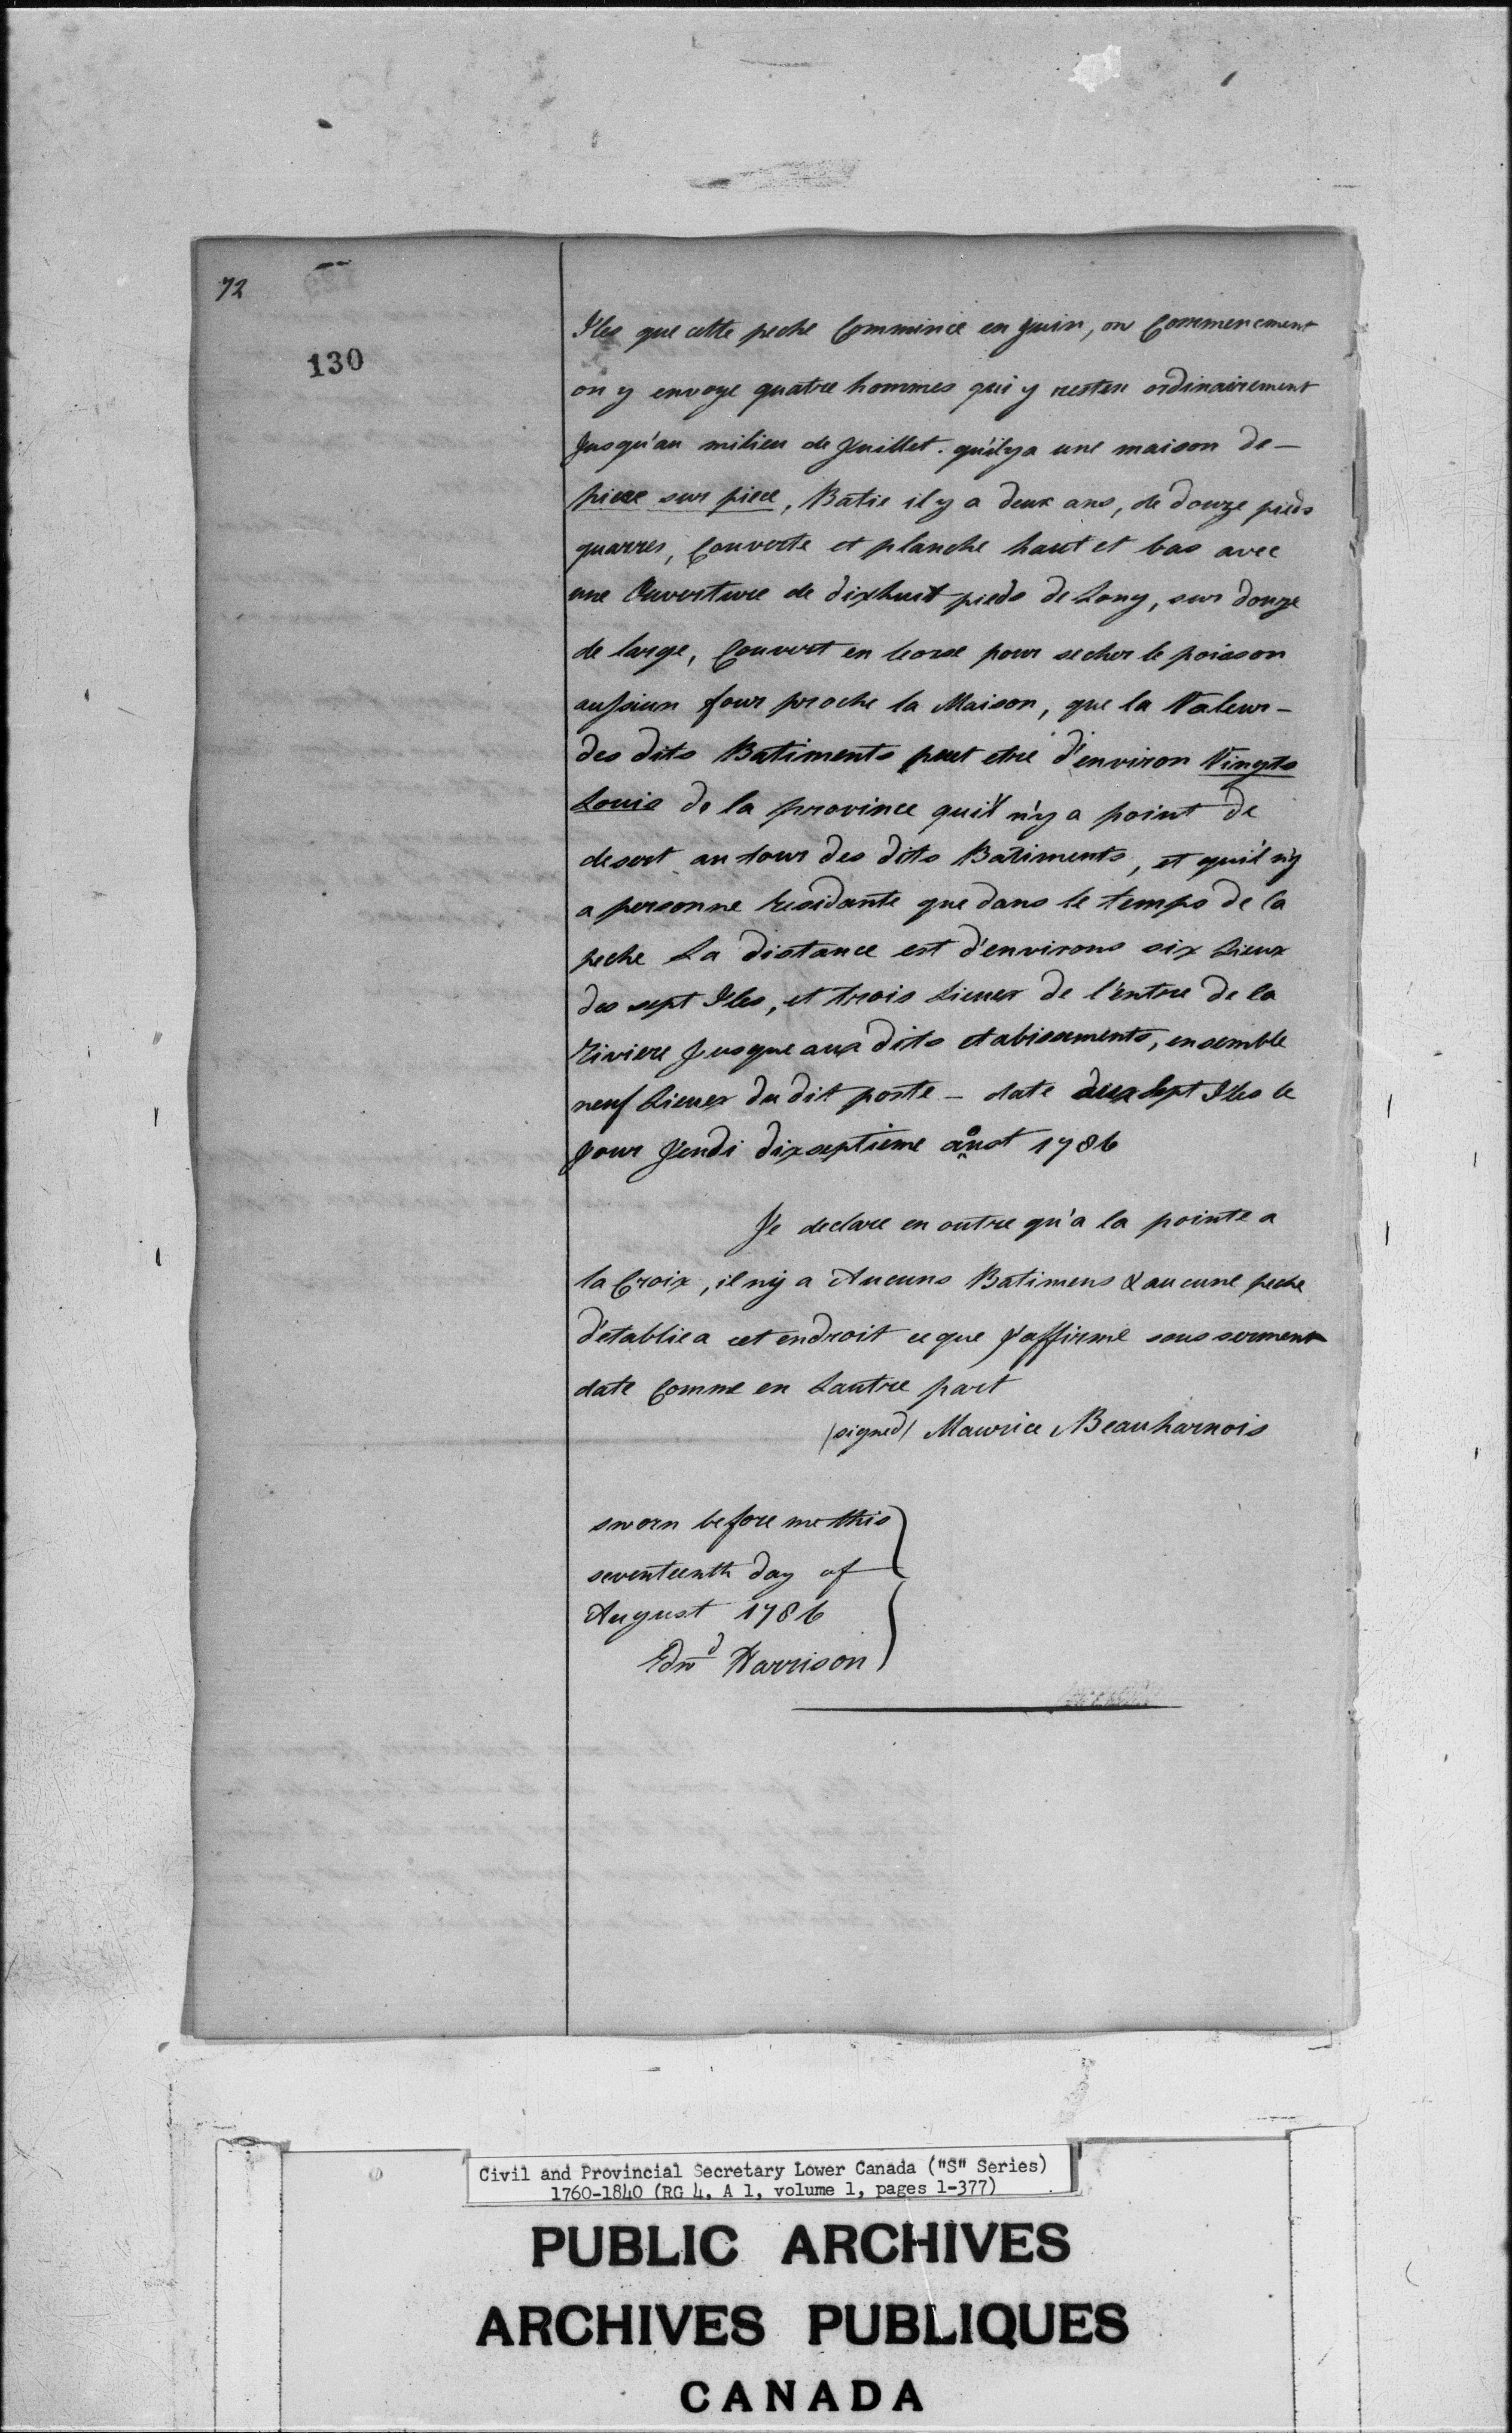 72
130
Iles que cette peche Commince en juin, on Commencement
on y envoye quatre hommes qui y resten ordinairement
Jusqu'au milieu de Juillet. qu'il y a une maison de —
piece sur piece, Batie il y a deux ans, de douze pieds
quarres, Couverte et planche haut et bas avec
une Ouverture de dixhuit pieds de Long, sur douze
de large, Couvert en leorse pour secher le poisson
aussi un four proche la Maison, que la Valeur —
des dits Batiments peut etre d'environ Vingts
Louis de la province qu'il n'y a point de
desert au tour des dits Batiments, et qu'il n'y
a personne residante que dans le temps de la
peche La distance est d'environs six Lieux
des sept Iles, et trois Lieues de l'entre de la
Riviere Jusque aux dits etabissements, ensemble
neuf Lieues du dit poste — date aux Sept Iles le
Jour Jeudi dixseptieme aoust 1786
Je declare en outre qu'a la pointe a
la Croix, il n'y a Aucuns Batimens & aucune peche
d'etablie a cet endroit ce que J'affirme sous serment
date Comme en Lautre part
(signed) Maurice Beauharnois
sworn before me this
seventeenth day of
August 1786
Edwd Harrison
Civil and Provincial Secretary Lower Canada ("S" Series)
1760-1840 (RG 4, A 1, volume 1, pages 1-377)
PUBLIC ARCHIVES
ARCHIVES PUBLIQUES
CANADA